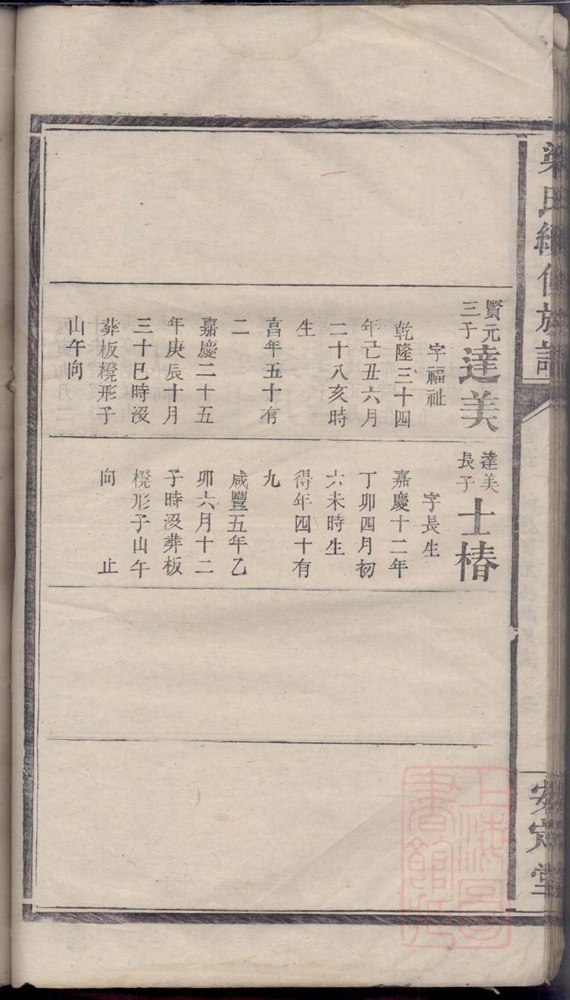 梁氏續修族譜
安定堂
賢元
三子
達美
字福祉
乾隆三十四
年己丑六月
二十八亥時
生
亯年五十有
二
嘉慶二十五
年庚辰十月
三十巳時沒
葬板櫈形子
山午向
達美
長子
士椿
字長生
嘉慶十二年
丁卯四月初
六未時生
得年四十有
九
咸豐五年乙
卯六月十二
子時沒葬板
櫈形子山午
向 止
上海圖
書館藏